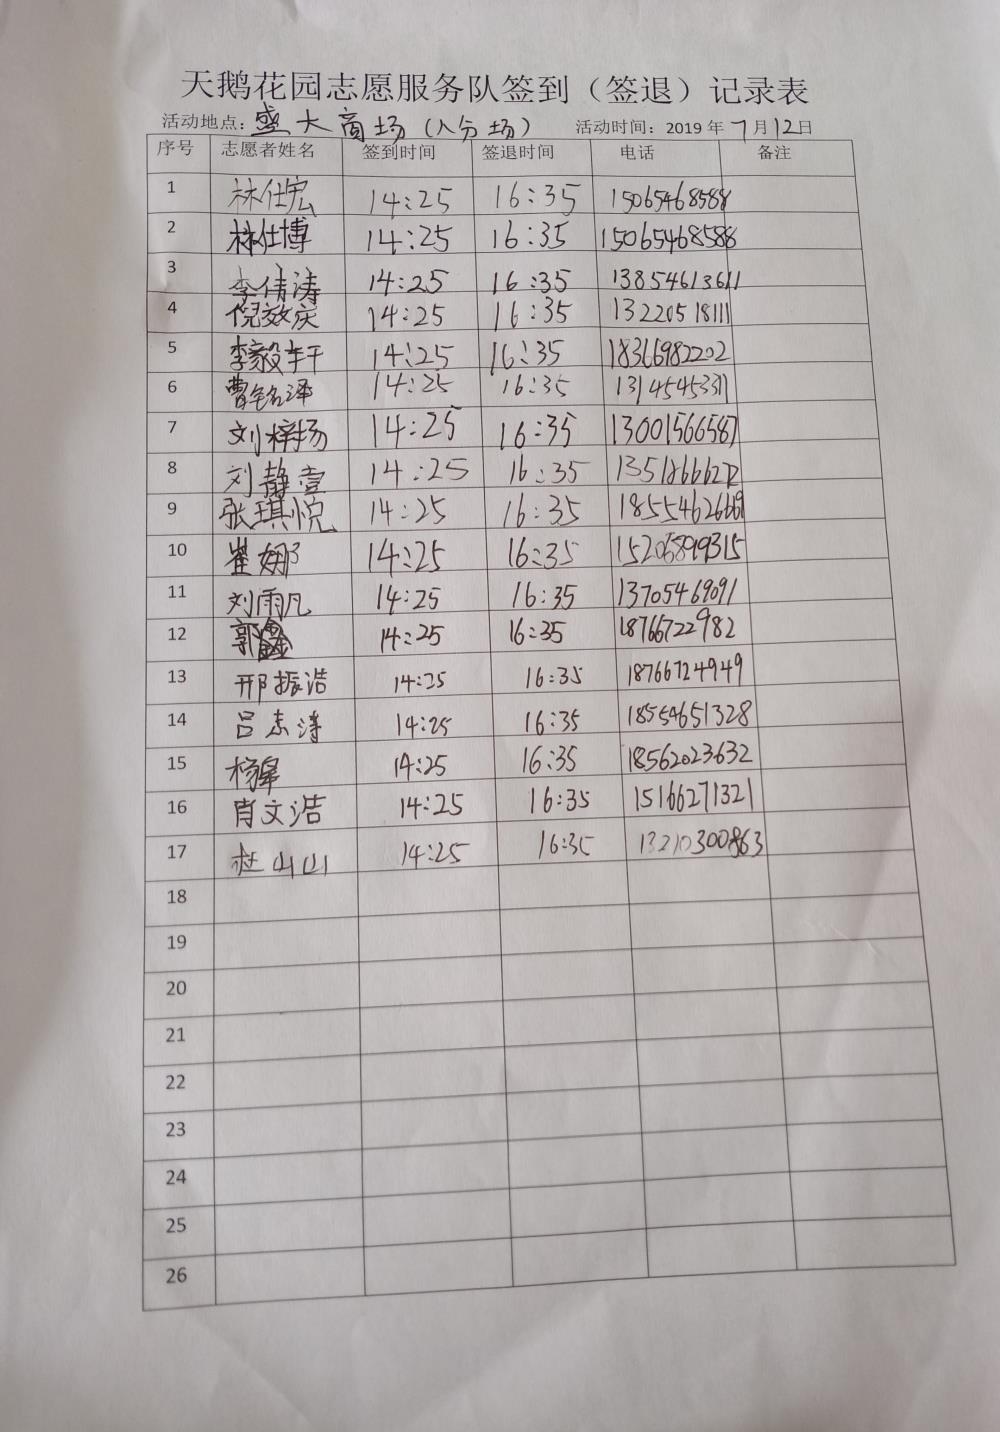 天鹅花园志愿服务队签到（签退）记录表
活动地点：盛大商场（八分场） 活动时间：2019年7月12日
序号 志愿者姓名 签到时间 签退时间 电话 备注
1 林仕宏 14:25 16:35 15065468588
2 林仕博 14:25 16:35 15065468588
3 李倩涛 14:25 16:35 13854613611
4 倪效庆 14:25 16:35 13220518111
5 李毅轩 14:25 16:35 18366982202
6 曹铭泽 14:25 16:35 13145453311
7 刘梓扬 14:25 16:35 13001566587
8 刘静壹 14:25 16:35
9 张琪悦 14:25 16:35
10 崔娜 14:25 16:35 15206899315
11 刘雨凡 14:25 16:35 13705469091
12 郭鑫 14:25 16:35 18766722982
13 邢振浩 14:25 16:35 18766724949
14 吕志涛 14:25 16:35 18554651328
15 杨犀 14:25 16:35 18562023632
16 肖文浩 14:25 16:35 15166271321
17 杜山山 14:25 16:35 13210300863
18
19
20
21
22
23
24
25
26